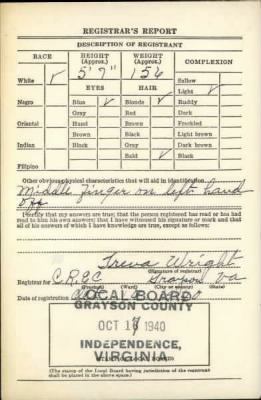 REGISTRAR'S REPORT
DESCRIPTION OF REGISTRANT
RACE HEIGHT (Approx.) WEIGHT (Approx.) COMPLEXION
5' 7" 156
White ✓ EYES HAIR Sallow
Light ✓
Negro Blue ✓ Blonde ✓ Ruddy
Gray Red Dark
Oriental Hazel Brown Freckled
Brown Black Light brown
Indian Black Gray Dark brown
Bald ✓ Black
Filipino
Other obvious physical characteristics that will aid in identification
Middle finger on left hand
off
I certify that my answers are true; that the person registered has read or has had
read to him his own answers; that I have witnessed his signature or mark and that
all of his answers of which I have knowledge are true, except as follows:
Treva Wright
(Signature of registrar)
Registrar for Grayson Va
(Precinct) (Ward) (City or county) (State)
Date of registration
LOCAL BOARD
GRAYSON COUNTY
OCT 16 1940
INDEPENDENCE,
VIRGINIA
(The stamp of the Local Board having jurisdiction of the registrant
shall be placed in the above space.)